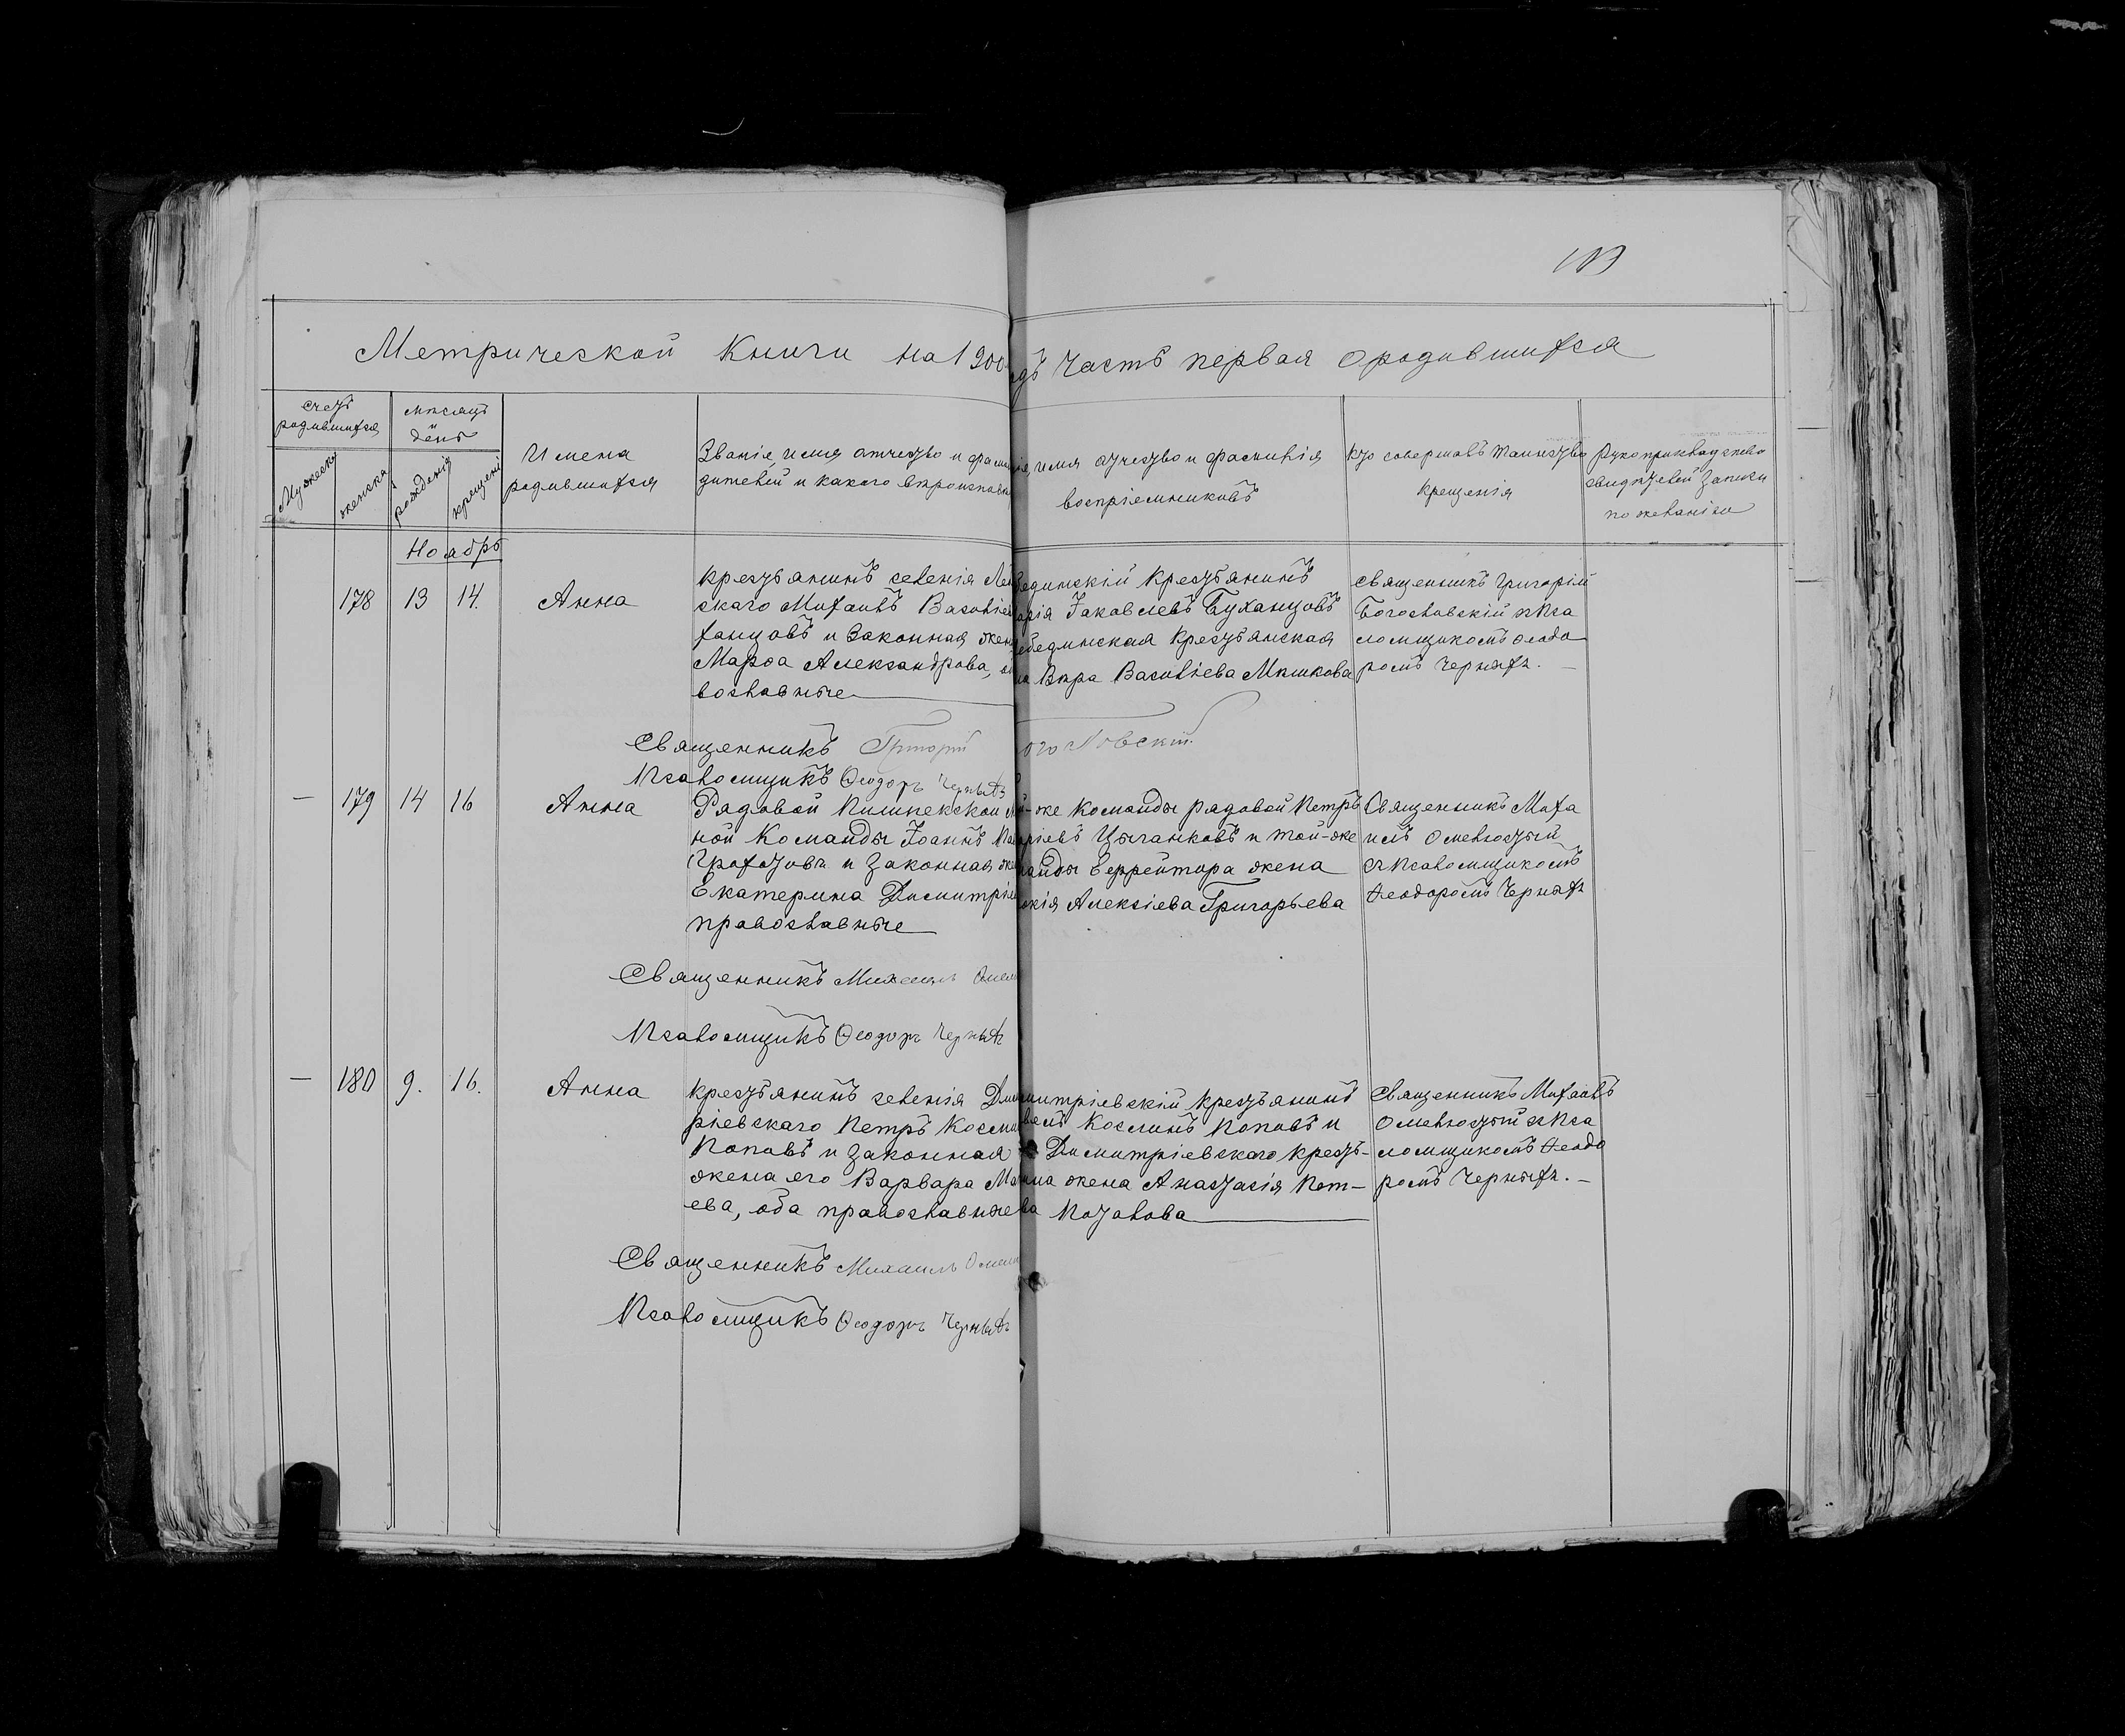 Метрической Книги на 1900
годъ часть первая о родившихся
счетъ родившихся
мѣсяцъ и день
Мужеска
женска
рожденія
крещенія
Имена
родившихся
Званіе, имя отчество и
дителей и какого вѣроисповѣ
имя отчество и фамилія
воспріемниковъ
Кто совершалъ таинство
крещенія
Рукоприкладство
свидѣтелей записи
по желанію
Ноябрь
178 13 14. Анна
Крестьянинъ селенія Ле
скаго Михаилъ Василіе
ханцовъ и Законная жен
Марѳа Александрова,
вославные
бединскій Крестьянинъ
Іаковлевъ Буханцовъ
бединская крестьянская
Вѣра Василіева Мишкова
Священникъ Григорій
Богославскій съ Пса
ломщикомъ Ѳеодо
ромъ Черныхъ. —
Священникъ Григорій
ословскій.
Псаломщикъ Ѳеодоръ Черныхъ
— 179 14 16 Анна
Рядовой Пишпекской
ной Команды Іоаннъ
и законная же
Екатерина Димитрі
православные
й-же команды рядовой Петръ
Цыганковъ и той-же
анды Ефрейтора жена
Алексіева Григорьева
Священникъ Миха
илъ Омелюстый
съ Псаломщикомъ
Ѳеодоромъ Черныхъ
Священникъ Михаилъ Омел
Псаломщикъ Ѳеодоръ Черныхъ
— 180 9. 16. Анна
Крестьянинъ селенія Ди
ріевскаго Петръ Косми
Поповъ и законная
жена его Варвара Ма
ева, оба православные
митріевскій крестьянинъ
Косминъ Поповъ и
Димитріевскаго кресть-
жена Анастасія Пет-
ва Потапова
Священникъ Михаилъ
Омелюстый съ Пса
ломщикомъ Ѳеодо
ромъ Черныхъ. —
Священникъ Михаилъ Омел
Псаломщикъ Ѳеодоръ Черныхъ